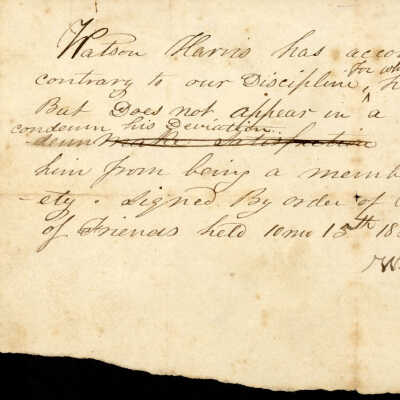 Watson Harris has accom
contrary to our Discipline, For wh
But Does not appear in a
condemn his Deviation
make Satisfaction
him from being a memb
-ety. Signed. By order of
of Friends held 10 mo 15th 18
W